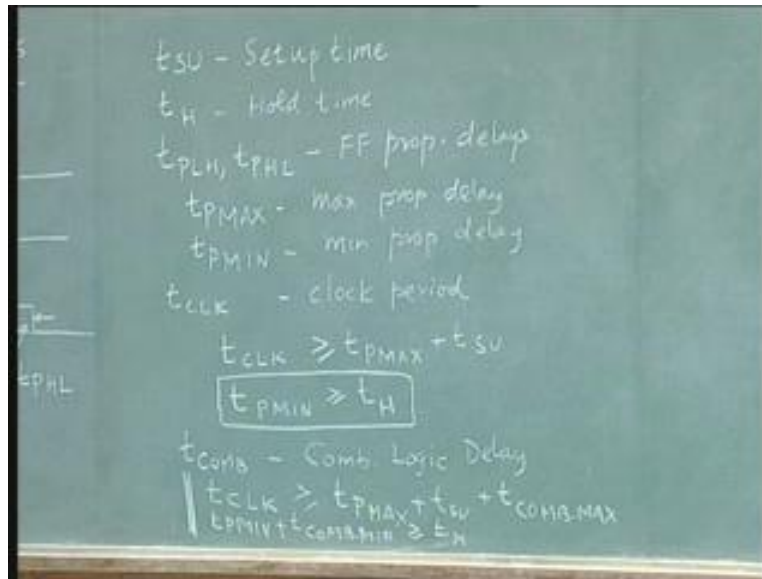 tSU - Setup time
tH - Hold time
tPLH, tPHL - FF prop. delays
tPMAX - max prop delay
tPMIN - min prop delay
tCLK - clock period
tCLK ≥ tPMAX + tSU
tPMIN ≥ tH
tPHL
tCOMB - Comb. Logic Delay
tCLK ≥ tPMAX + tSU + tCOMB.MAX
tPMIN + tCOMB.MIN ≥ tH